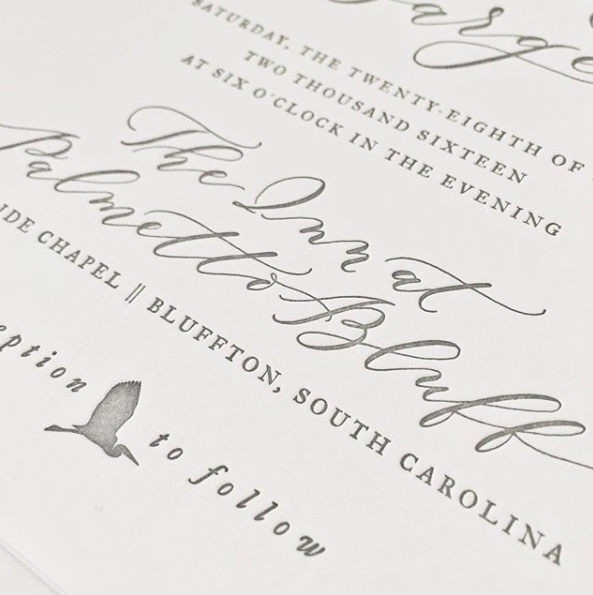 SATURDAY, THE TWENTY-EIGHTH OF
TWO THOUSAND SIXTEEN
AT SIX O'CLOCK IN THE EVENING
The Inn at
Palmetto Bluff
CHAPEL || BLUFFTON, SOUTH CAROLINA
to follow